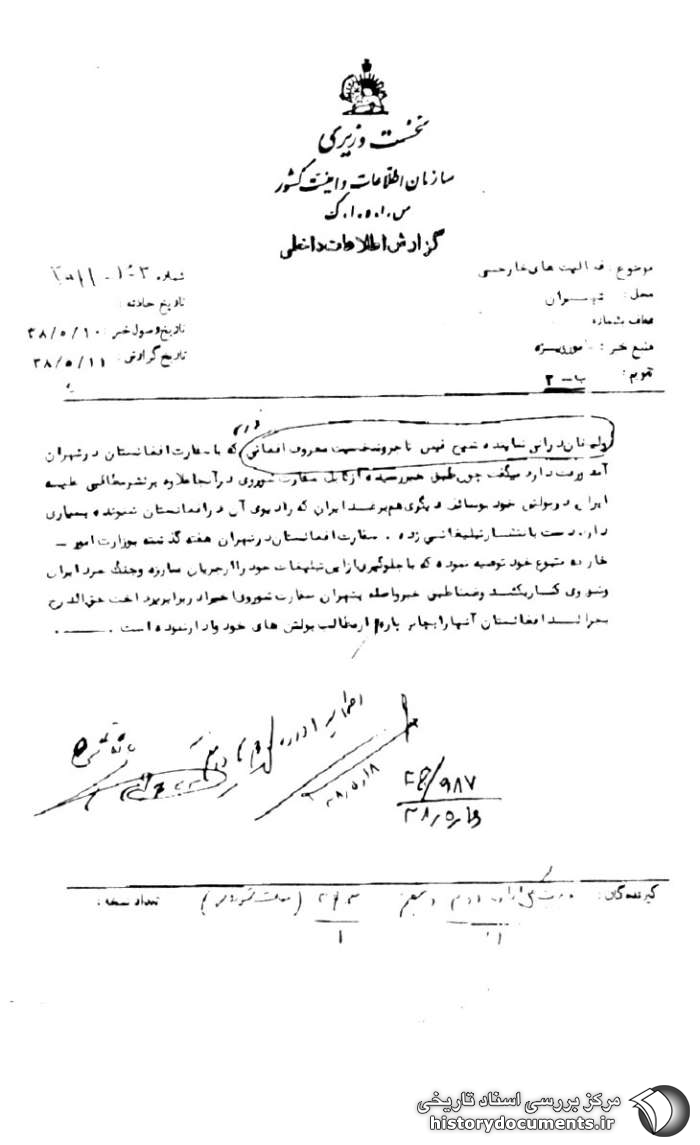 نخست وزیری
سازمان اطلاعات و امنیت کشور
س.ا.و.ا.ک
گزارش اطلاعات داخلی
موضوع : فعالیت های خارجی
محل : تهران
عطف بشماره
منبع خبر : مامور ویژه
تقویم : ب - ۲
شماره
تاریخ حادثه :
تاریخ وصول خبر : ۳۸/۵/۱۰
تاریخ گزارش : ۳۸/۵/۱۱
ولیخان درانی نماینده شیخ قیس تاجر و شخصیت معروف افغانی که با سفارت افغانستان در تهران
آمد و رفت دارد میگفت چون طبق خبر رسیده از کابل سفارت شوروی در آنجا علاوه بر نشر مطالبی علیه
ایران در بولتن خود بوسائل دیگری هم بر ضد ایران که رادیوی آن در افغانستان شنونده بسیاری
دارد دست بانتشار تبلیغاتی زده . سفارت افغانستان در تهران هفته گذشته بوزارت امور -
خارجه متبوع خود توصیه نموده که با جلوگیری از این تبلیغات خود را از جریان مبارزه و جنگ سرد ایران
و شوروی کنار بکشد وضمنا طبق خبر واصله بتهران سفارت شوروی اخیرا در برابر پرداخت حق الدرج
بجرائد افغانستان آنها را بچاپ پاره از مطالب بولتن های خود وادار نموده است .
۳۸/۵/۱۸
۹۸۷
گیرندگان :
تعداد نسخه :
مرکز بررسی اسناد تاریخی
historydocuments.ir